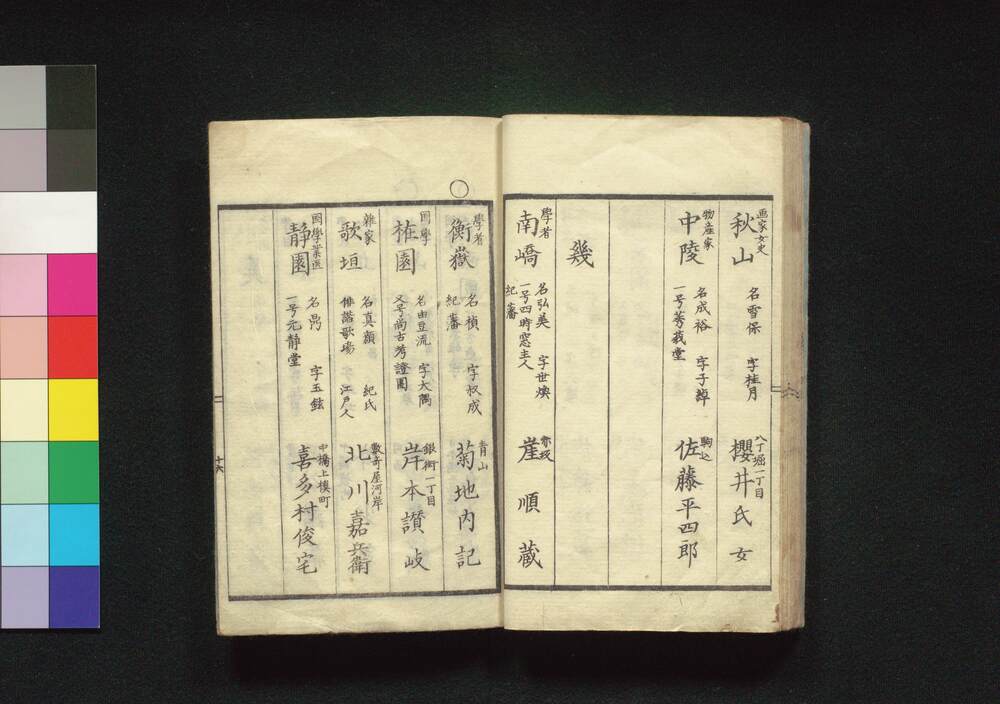 画家女史
秋山
名雪保 字桂月
八丁堀一丁目
櫻井氏女
物産家
中陵
名成裕 字子綽
一号菁莪堂
駒込
佐藤平四郎
幾
學者
南嶠
名弘美 字世煥
一号四時窓主人
紀藩
赤坂
崖順蔵
學者
衡嶽
名楨 字叔成
紀藩
青山
菊地内記
国學
在園
名由豆流 字大隅
又号尚古考證園
銀街一丁目
岸本讃岐
雜家
歌垣
名真顔 紀氏
俳諧歌場 江戸人
數寄屋河岸
北川嘉兵衛
国學業医
静園
字玉鉉
一号元静堂
中橋上槙町
喜多村俊宅
十六